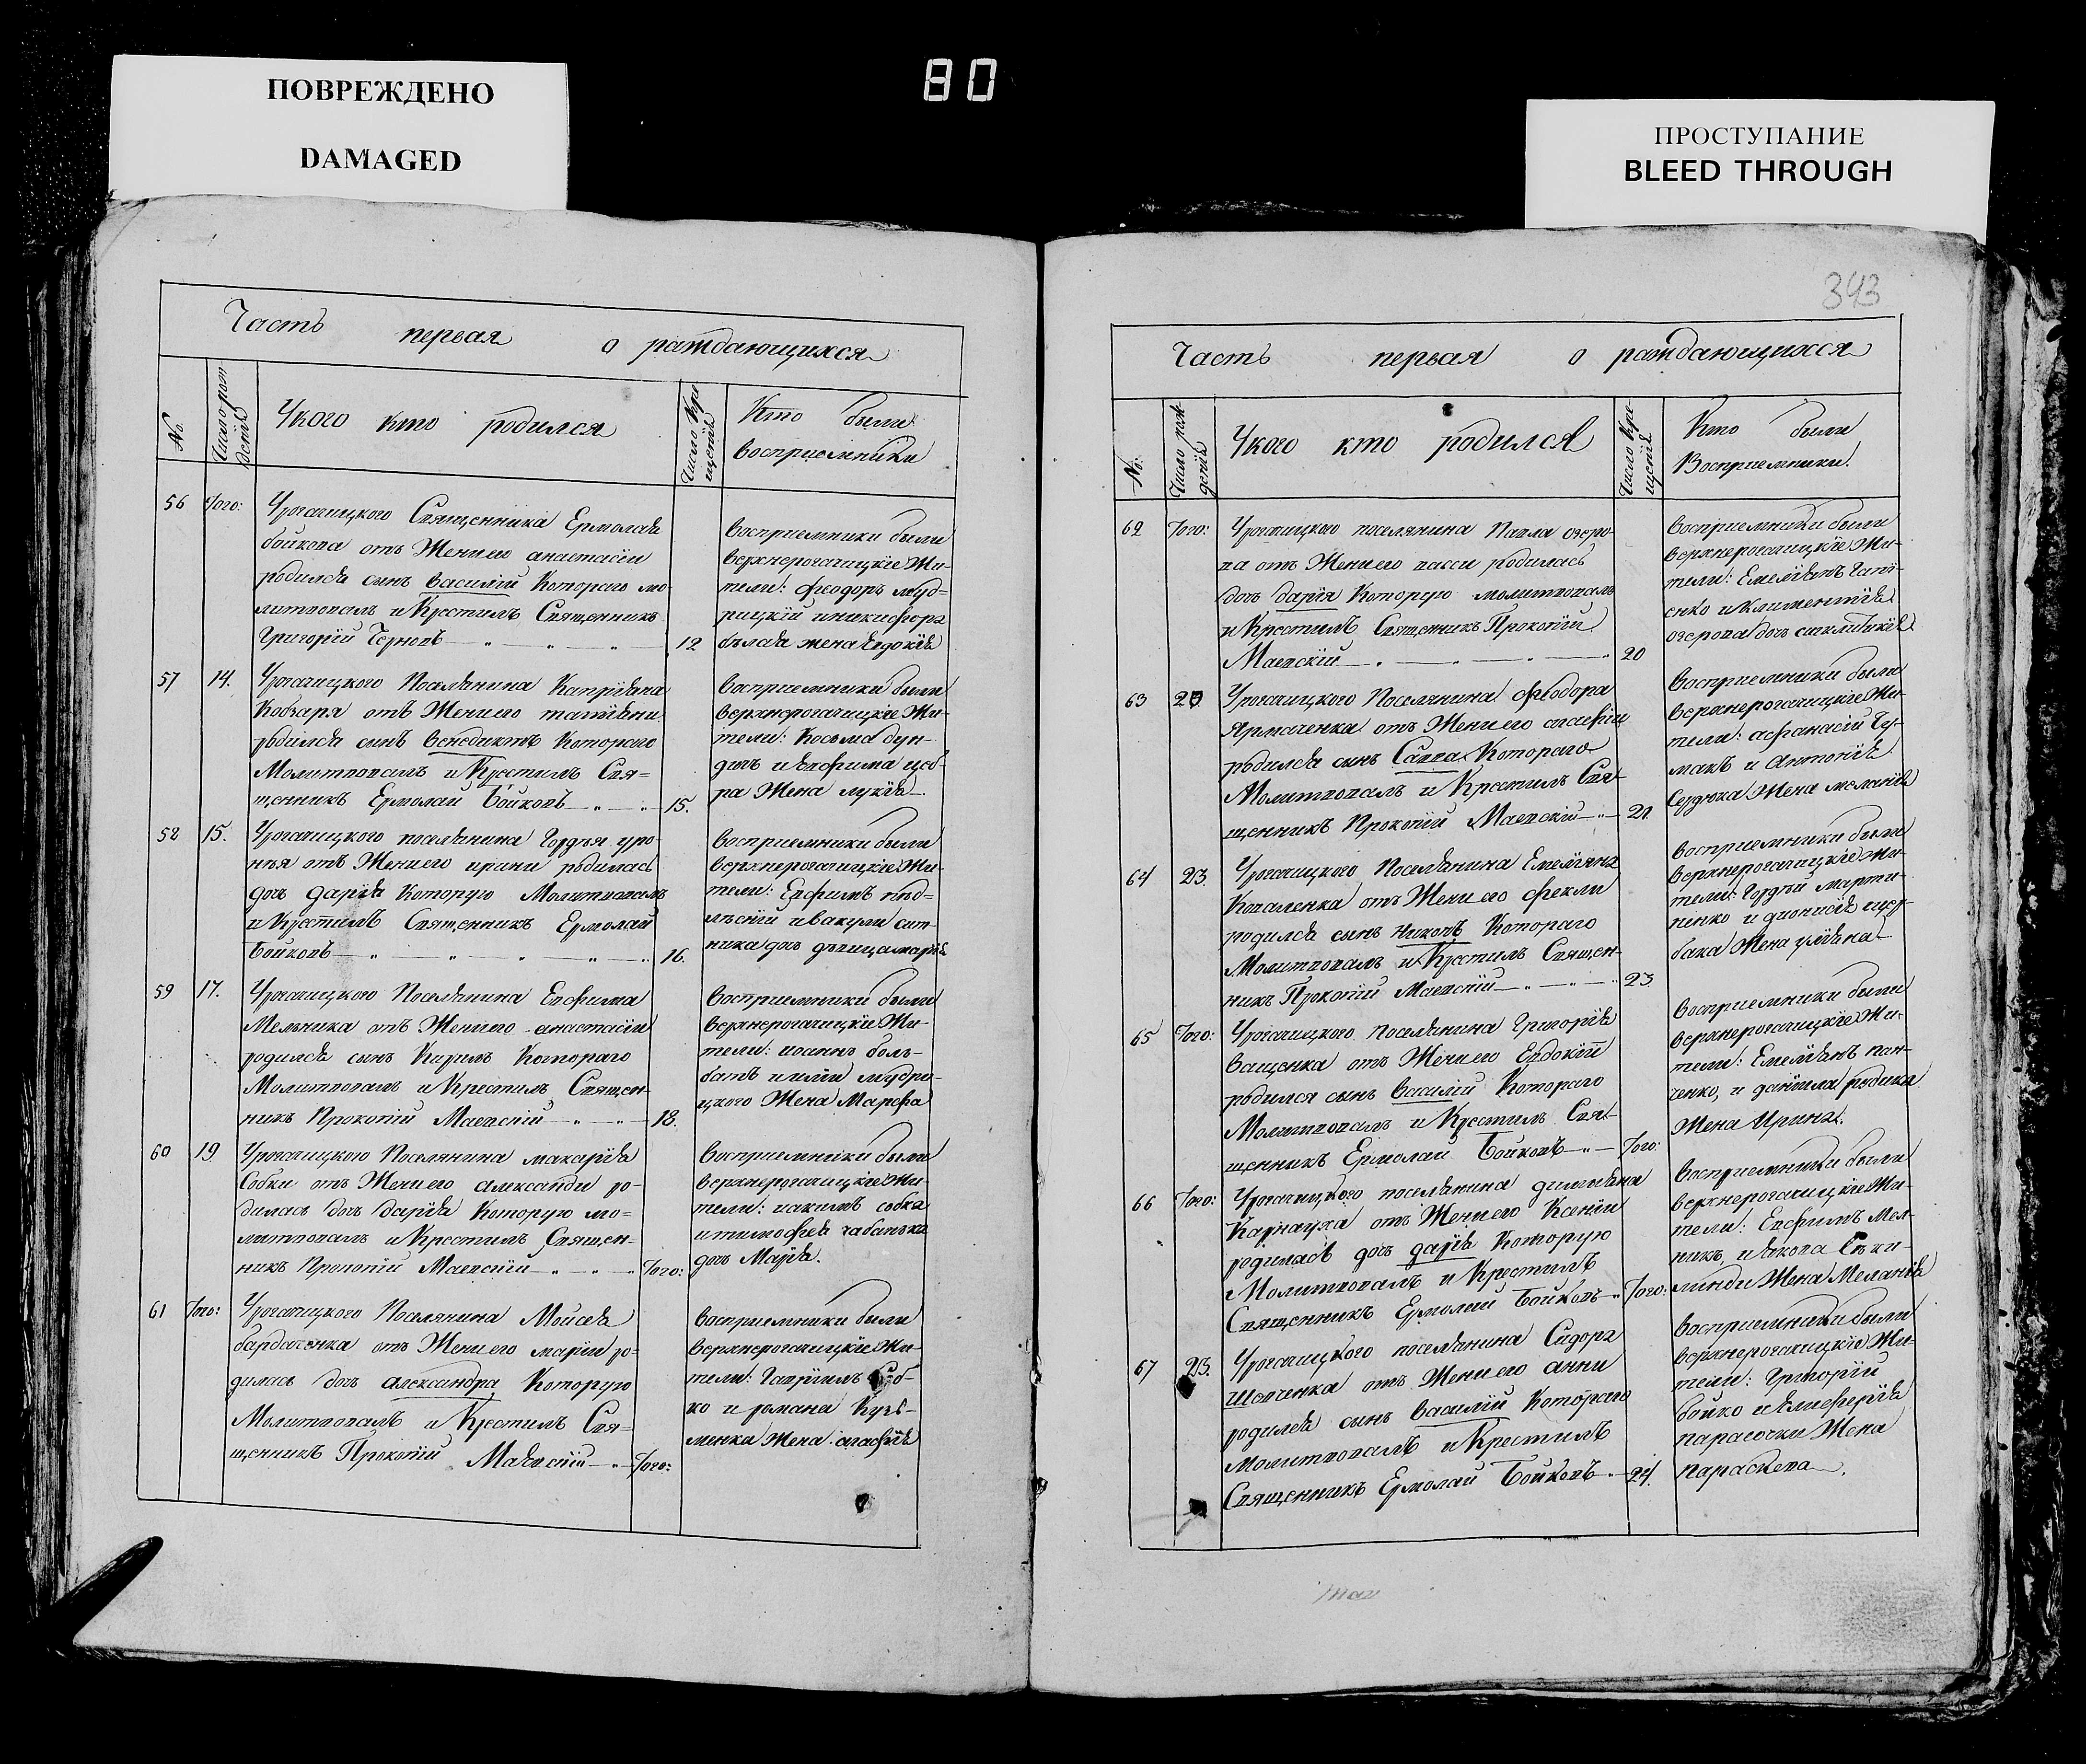 ПОВРЕЖДЕНО
DAMAGED
80
ПРОСТУПАНИЕ
BLEED THROUGH
Часть первая о раждающихся
№
Число рож-
денія
Укого кто родился
Число Кре
щенія
Кто были
восприемники
56 Того: Урогачицкого Священника Ермолая
бойкова отъ Жени его анастасіи
родился сынъ василій Которого мо-
литвовалъ и Крестилъ Священникъ
Григорій Чернов 12
восприемники были
верхнерогачицкіе Жи-
тели: феодоръ муд-
рицкій и никифора
бѣлая жена Евдокія
57 14. Урогачицкого Поселянина Капріяна
Кобзаря отъ Жени его татіяни
родился сынъ венедиктъ Которого
Молитвовалъ и Крестилъ Свя-
щенникъ Ермолай Бойковъ 15.
восприемники были
верхнерогачицкіе Жи-
тели: Косьма дун-
дичъ и Евфима
ра Жена лукія
58 15. Урогачицкого поселянина Гордѣя
от Жени его ирини родилась
дочь дарія Которую Молитвовалъ
и Крестилъ Священникъ Ермолай
Бойковъ 16.
восприемники были
верхнерогачицкіе Жи-
тели: Евфимъ
и вакули сит-
ника дочь дѣвица марія
59 17. Урогачицкого Поселянина Евфима
Мельника отъ Жени его анастасіи
родился сынъ Кирилъ Которого
Молитвовалъ и Крестилъ Священ-
никъ Прокопій Маевскій 18.
восприемники были
верхнерогачицкіе Жи-
тели: иоанъ боль-
батъ и иліи мудри-
цкого Жена Марфа
60 19 Урогачицкого Поселянина макарія
Собки отъ Жени его александри ро-
дилась дочь дарія Которую мо-
литвовалъ и Крестилъ Священ-
никъ Прокопій Маевскій Того:
восприемники были
верхнерогачицкіе Жи-
тели: иакимъ собка
и тимофея чабаника
дочь Марія.
61 Того: Урогачицкого Поселянина Мойсея
бардаченка отъ Жени его маріи ро-
дилась дочь александра Которую
Молитвовалъ и Крестилъ Свя-
щенникъ Прокопій Маевскій Того:
восприемники были
верхнерогачицкіе Жи-
тели: Гавріилъ
ко и романа Кузь-
менка Жена агафія
343
Часть первая о раждающихся
№:
Число рож-
денія
Укого кто родился
Число Кре-
щенія
Кто были
Восприемники.
62 Того: Урогачицкого поселянина Павла озеро-
ва отъ Жени его васси родилась
дочь дарія Которую молитвовалъ
и Крестилъ Священникъ Прокопій
Маевскій 20
восприемники были
верхнерогачицкіе Жи-
тели: Емеліянъ Гапі-
енко и Климентія
озерова дочь сиклитикія
63 20 Урогачицкого Поселянина Феодора
Ярмоченка отъ Жени его агафіи
родился сынъ Савва Которого
Молитвовалъ и Крестилъ Свя-
щенникъ Прокопій Маевскій 21
восприемники были
верхнерогачицкіе Жи-
тели: афанасій Чу-
макъ и Антонія
Сердюка Жена меланія
64 23. Урогачицкого Поселянина Емеліяна
Коваленка отъ Жени его фекли
родился сынъ Никонъ Которого
Молитвовалъ и Крестилъ Священ-
никъ Прокопій Маевскій 23
восприемники были
верхнерогачицкіе Жи-
тели: Гордѣй Марти-
ненко и дионисія щер-
бака Жена уліяна
65 Того: Урогачицкого поселянина Григорія
ващенка отъ Жени его Евдокіи
родился сынъ василій Которого
Молитвовалъ и Крестилъ Свя-
щенникъ Ермолай Бойковъ Того:
восприемники были
верхнерогачицкіе Жи-
тели: Емеліянъ пан-
ченко, и даніила рябика
Жена Ирина.
66 Того: Урогачицкого поселянина
Карнауха отъ Жени его Ксеніи
родилась дочь дарія Которую
Молитвовалъ и Крестилъ
Священникъ Ермолай Бойковъ Того:
восприемники были
верхнерогачицкіе Жи-
тели: Евфимъ Мел-
никъ, и якова Скъки-
линди Жена Меланія
67 23. Урогачицкого поселянина Сидора
Шевченка отъ Жени его анни
родился сынъ василій Которого
Молитвовалъ и Крестилъ
Священникъ Ермолай Бойковъ 24.
восприемники были
верхнерогачицкіе Жи-
тели: Григорій
бойко и елиферія
парасочки Жена
параскева.